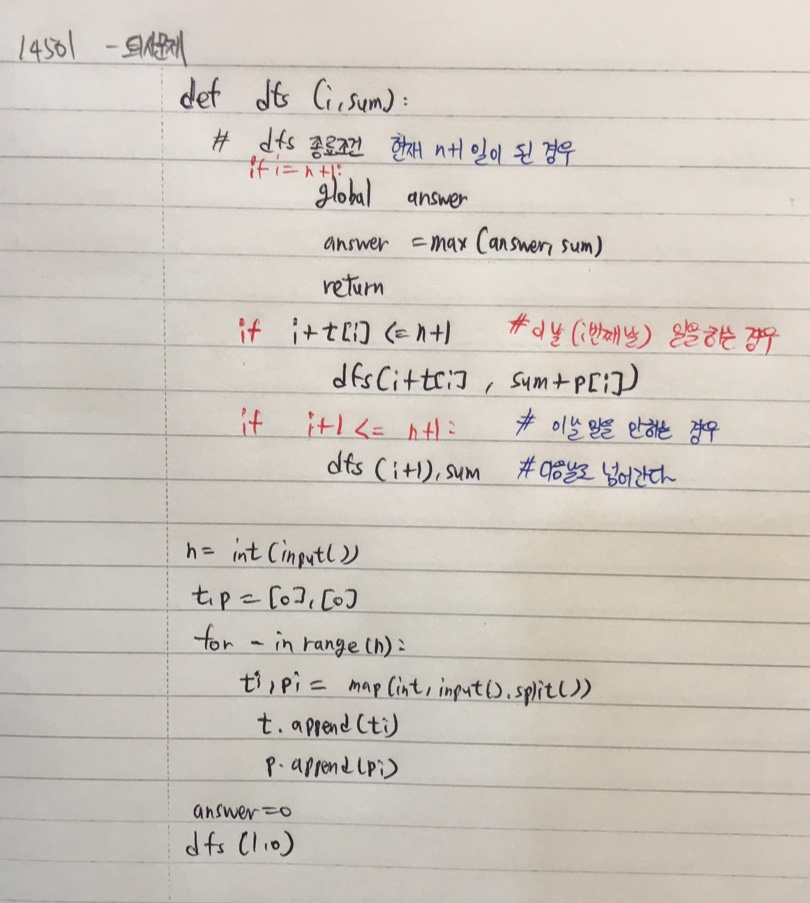 14501 - 퇴사문제
def dfs (i, sum):
# dfs 종료조건 현재 n+1 일이 된 경우
if i = n+1:
global answer
answer = max (answer, sum)
return
if i+t[i] <= n+1 #이날 (i번째날) 일을 하는 경우
dfs(i+t[i] , sum+p[i])
if i+1 <= n+1: # 이날 일을 안하는 경우
dfs (i+1), sum #다음날로 넘어간다
n= int(input())
t,p = [0], [0]
for - in range(n):
ti, pi = map(int, input().split())
t.append(ti)
p.append(pi)
answer=0
dfs (1,0)